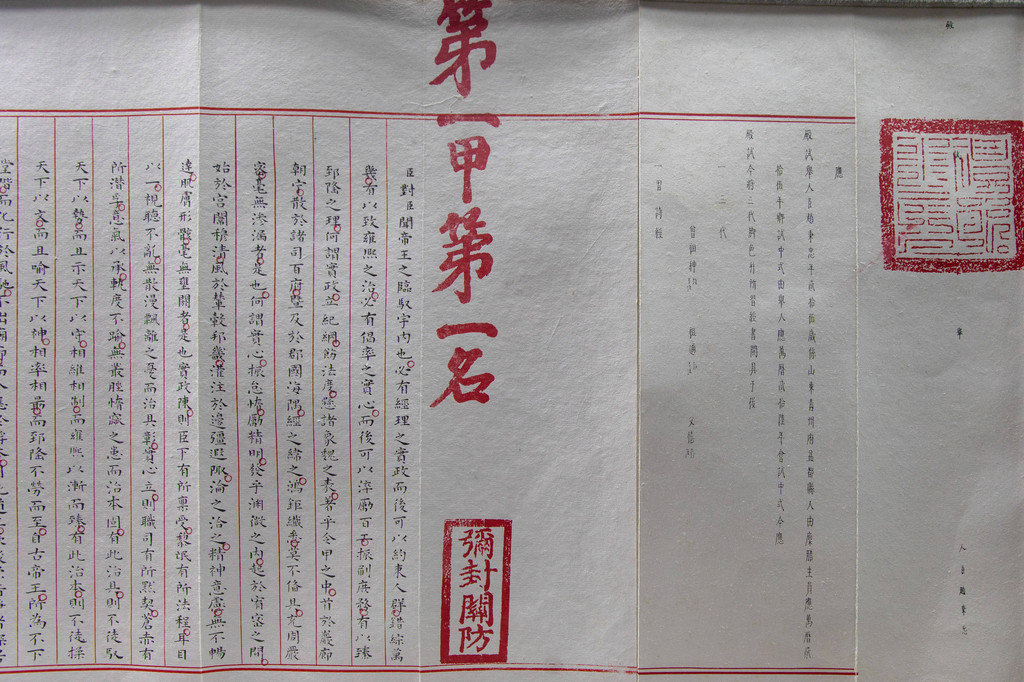 人臣趙秉忠
應
殿試舉人臣趙秉忠年貳拾伍歲係山東青州府益都縣人由廩膳生員應萬曆
拾伍年鄉試中式由舉人應萬曆貳拾陸年會試中式今應
殿試今將三代脚色并所習經書開具于後
一三代
曾祖 祖 父
一習詩經
第一甲第一名
彌封關防
臣對臣聞帝王之臨馭宇內也必有經理之實政而後可以約束人群錯綜萬
幾有以致雍熙之治必有倡率之實心而後可以淬勵百工振刷庶務有以臻
郅隆之理何謂實政立紀綱飭法度懸諸象魏之表著乎令甲之中首於巖廊
朝宁散於諸司百府暨及於郡國海隅經之緯之鴻鉅纖悉莫不備具充周嚴
密毫無滲漏者是也何謂實心振怠惰勵精明發乎淵微之內起於宥密之間
始於宮闈穆清風於輦轂邦畿灌注於邊疆遐陬淪之洽之精神意慮無不暢
達肌膚形骸毫無壅閼者是也實政陳則臣下有所禀受黎氓有所法程耳目
以一視聽不亂無散漫飄離之憂而治具彰實心立則職司有所默契蒼赤有
所潛孚意氣以承軌度不踰無叢脞惰窳之患而治本固有此治具則不徒馭
天下以勢而且示天下以守相維相制而雍熙以漸而臻有此治本則不徒操
天下以文而且喻天下以神相率相勗而郅隆不勞而至自古帝王所為不下
堂階而化行於風馳不出